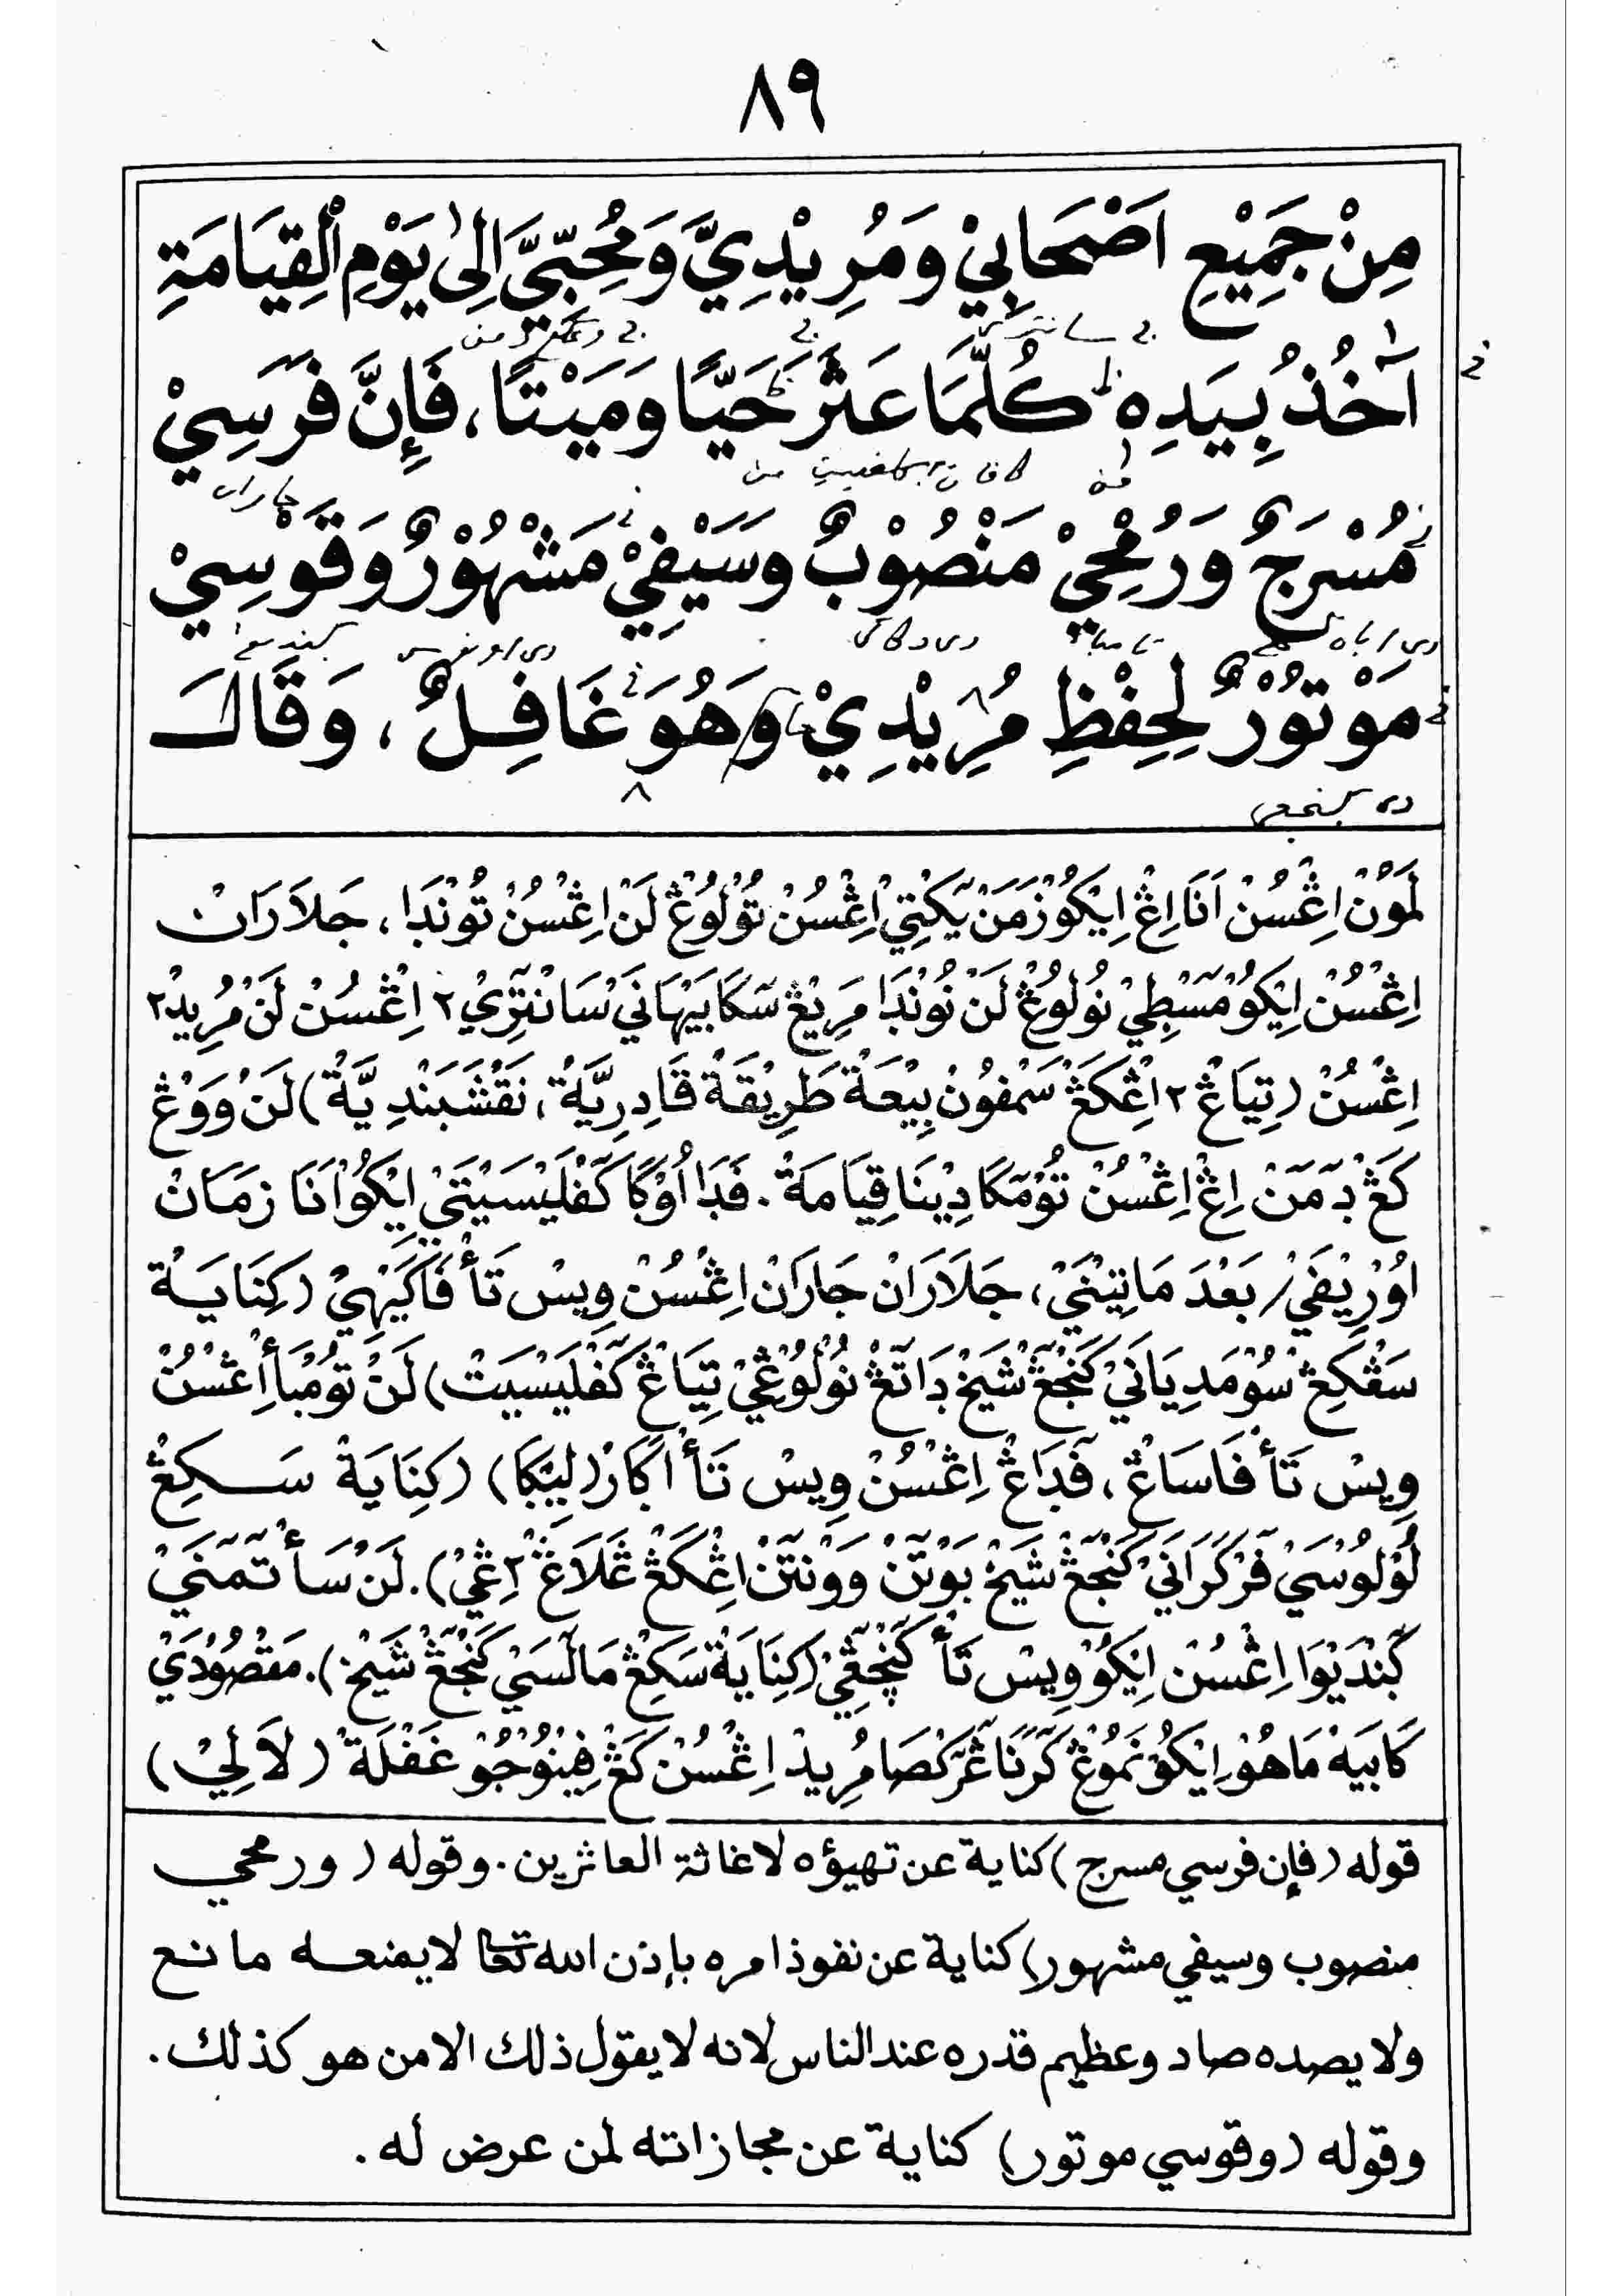 ٨٩
مِنْ جَمِيْعِ اَصْحَابِيْ وَمُرِيْدِيَّ وَمُحِبِّيَّ اِلٰى يَوْمِ الْقِيَامَةِ
آخُذُ بِيَدِهِ كُلَّمَا عَثَرَ حَيًّا وَمَيْتًا، فَإِنَّ فَرَسِيْ
مُسْرَجٌ وَرُمْحِيْ مَنْصُوْبٌ وَسَيْفِيْ مَشْهُوْرٌ وَقَوْسِيْ
مَوْتُوْرٌ لِحِفْظِ مُرِيْدِيْ وَهُوَ غَافِلٌ، وَقَالَ
لَمَوْنْ اِڠْسُنْ اَنَا اِڠْ اِيْكُوْ زَمَنْ يَكْتِيْ اِڠْسُنْ تُوْلُوْڠْ لَنْ اِڠْسُنْ تُوْنْدَا، جَلَارَانْ
اِڠْسُنْ اِيْكُوْ مَسْطِيْ نُولُوْڠْ لَنْ نُوْنْدَا مَرِيْڠْ سَكَابَيْهَانَيْ سَانْتَرِيْ٢ اِڠْسُنْ لَنْ مُرِيدْ٢
اِڠْسُنْ (تِيَاڠْ٢ اِڠْكَڠْ سَمْفُونْ بِيْعَةْ طَرِيْقَةْ قَادِرِيَّةْ، نَقْشَبَنْدِيَّةْ) لَنْ وَوْڠْ
كَڠْ دَمَنْ اِڠْ اِڠْسُنْ تُوْمَكَا دِيْنَا قِيَامَةْ. فَدَا اُوْݢَا كَفْلَيْسَيْتَيْ اِيْكُوْ اَنَا زَمَانْ
اُوْرِيْفَيْ/ بَعْدَ مَاتِيْنَيْ، جَلَارَانْ جَارَانْ اِڠْسُنْ وِيسْ تَأْ فَاكَيْهِيْ (كِنَايَةْ
سَڠْكِڠْ سُوْمَدِيَانَيْ كَنْجَڠْ شَيْخْ دَاتَڠْ نُوْلُوْڠِيْ تِيَاڠْ كَفْلَيْسَيتْ) لَنْ تُوْمْبَأْ اِڠْسُنْ
وِيسْ تَأْ فَاسَاڠْ، فَدَاڠْ اِڠْسُنْ وِيسْ تَأْ اَكَارْ (لِيݢَا) (كِنَايَةْ سَكِڠْ
لُوْلُوْسَيْ فَرْكَرَانَيْ كَنْجَڠْ شَيْخْ بَوْتَنْ وَوْنْتَنْ اِڠْكَڠْ ڠَلَاڠْ٢ـڠِيْ). لَنْ سَأْ تَمَنَيْ
ݢَنْدَيْوَا اِڠْسُنْ اِيْكُوْ وِيسْ تَأْ كَنْچَڠِيْ (كِنَايَةْ سَكِڠْ مَالَسَيْ كَنْجَڠْ شَيْخْ). مَقْصُوْدَيْ
كَابَيَهْ مَاهُوْ اِيْكُوْ نَمُوْڠْ كَرَنَا ڠَرَكْصَا مُرِيدْ اِڠْسُنْ كَڠْ فِيْنُوْجُوْ غَفْلَةْ (لَالِيْ)
قوله (فإن فرسي مسرج) كناية عن تهيؤه لاغاثة العاثرين. وقوله (ورمحي
منصوب وسيفي مشهور) كناية عن نفوذ امره بإذن الله تعا لا يمنعه مانع
ولا يصده صاد وعظيم قدره عند الناس لانه لا يقول ذلك الا من هو كذلك.
وقوله (وقوسي موتور) كناية عن مجازاته لمن عرض له.